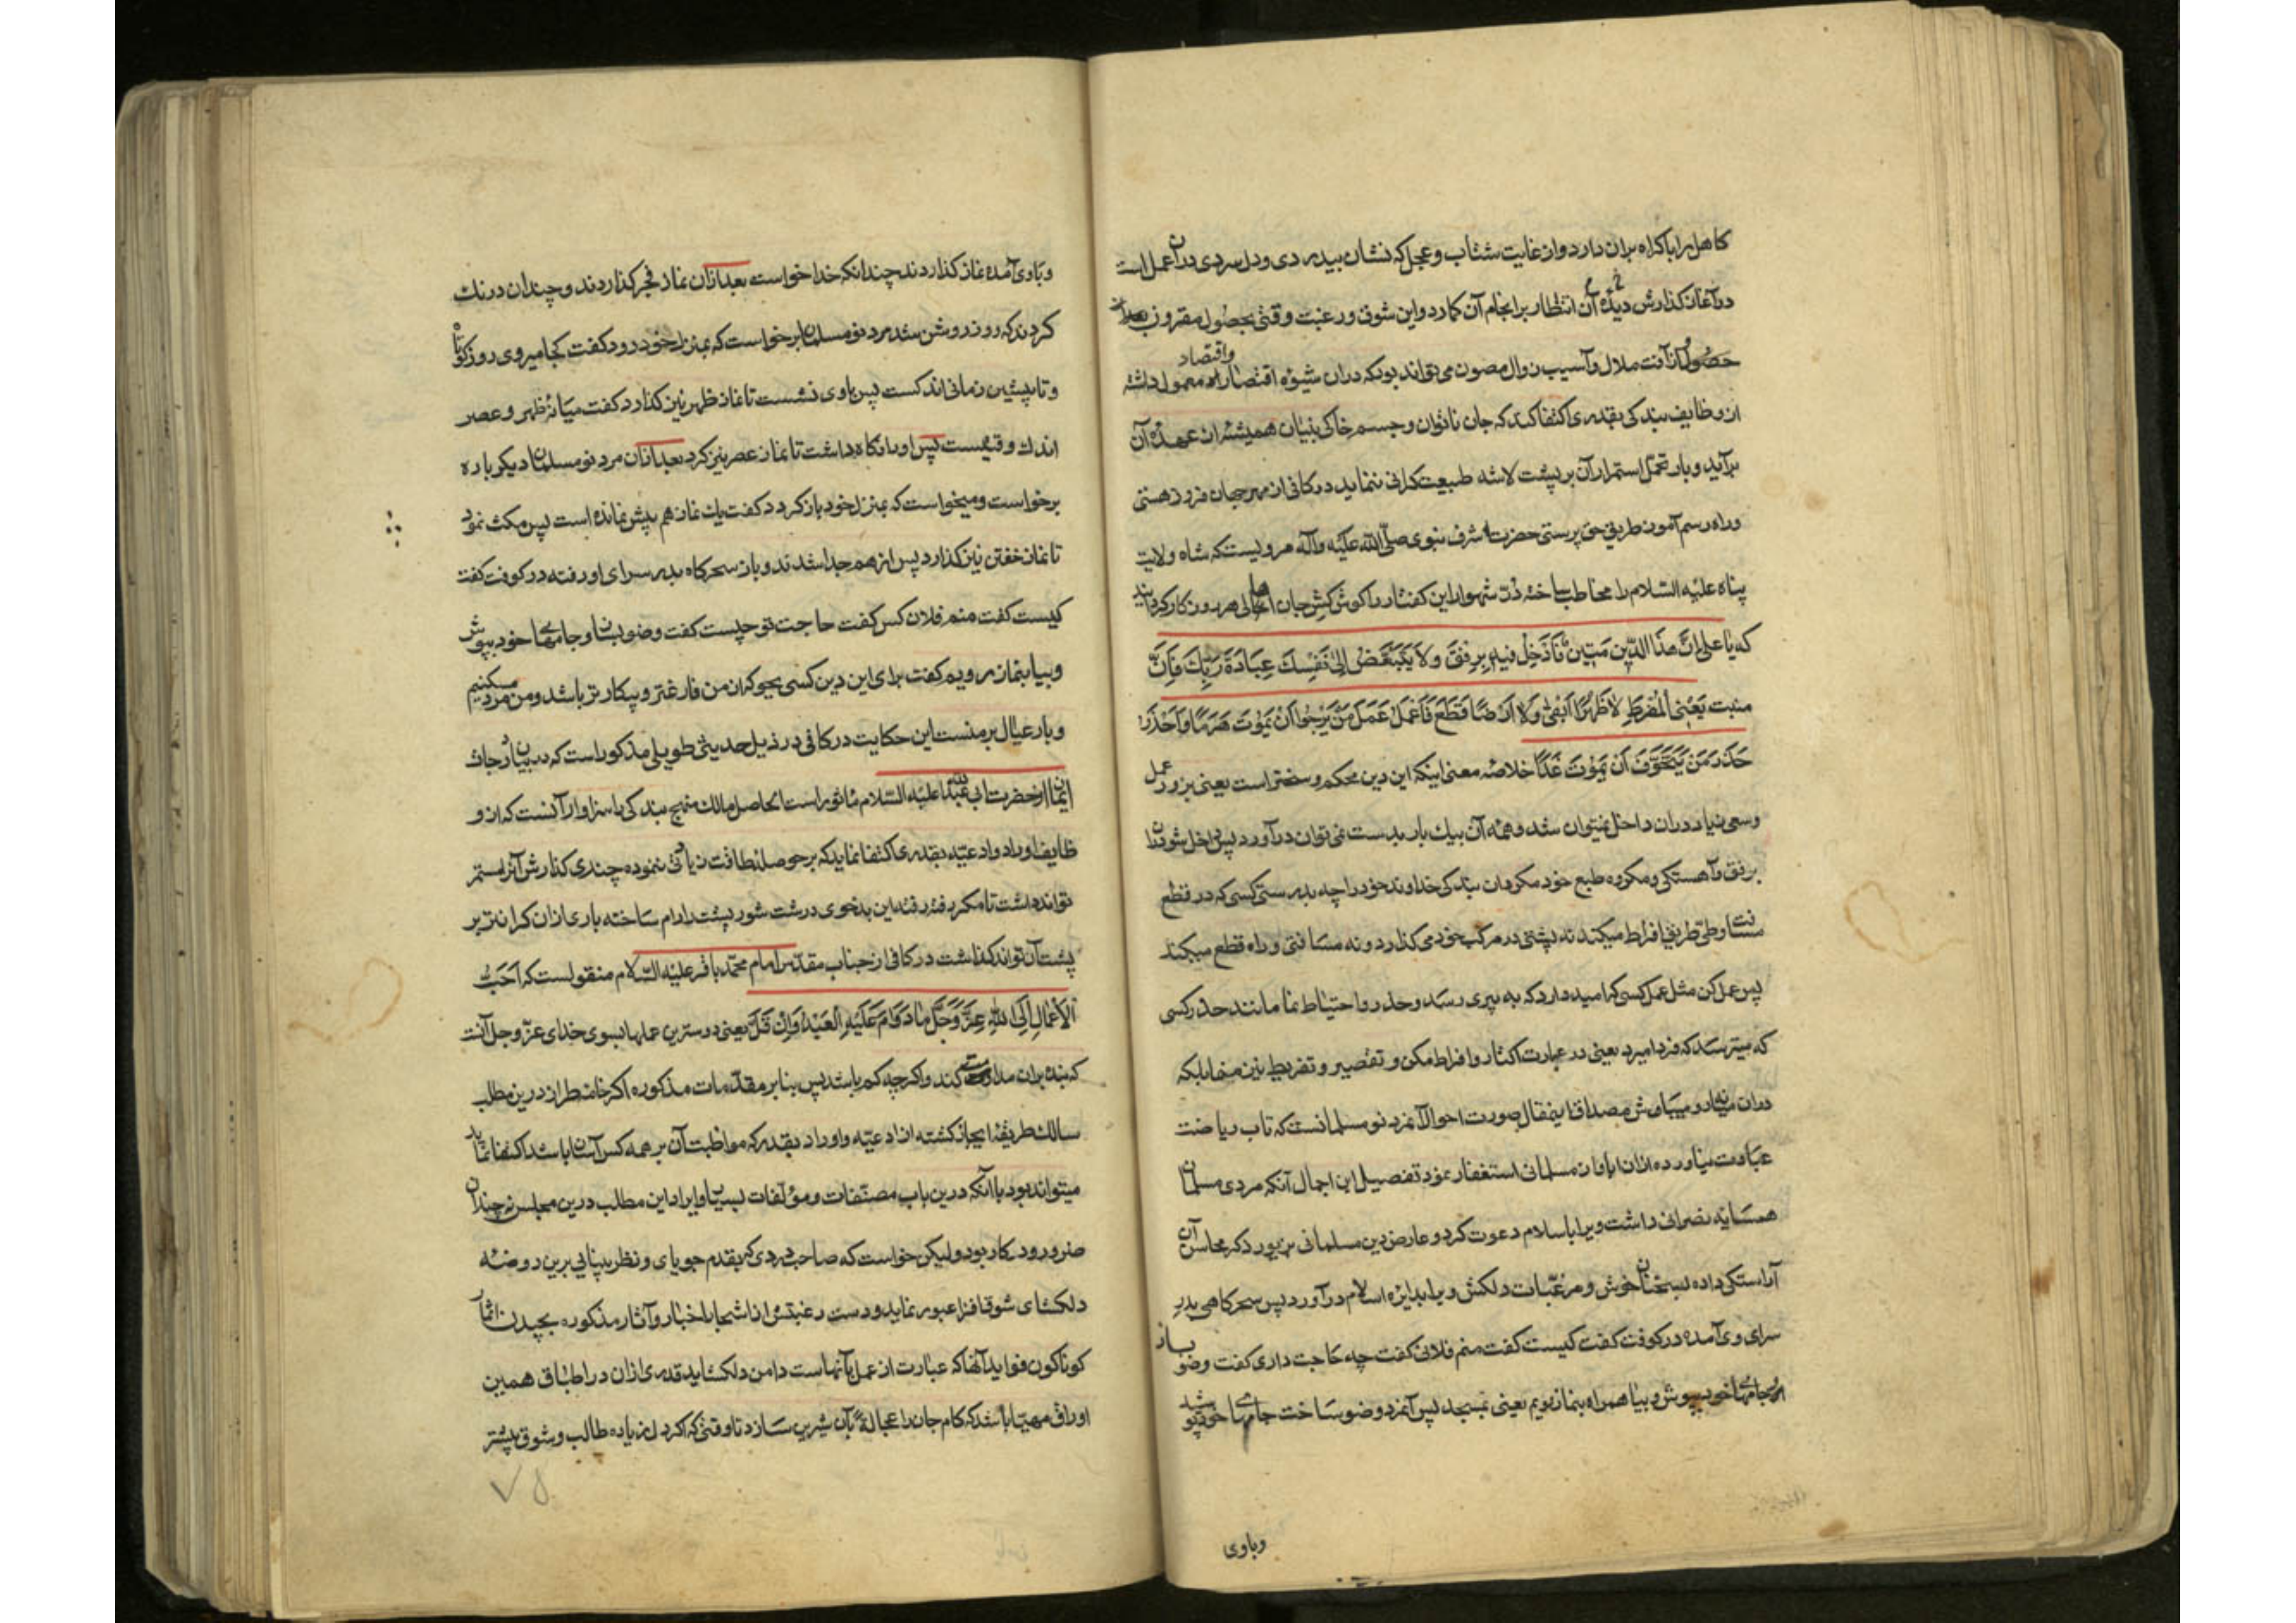 کاهل را باکراه بران دارد وان غایت شتاب و عجل که نشان بیدردی ودل سردی دران عمل است
در آغاز کذارش دیده آن انتظار برانجام آن کمارد واین شوق ورغبت وقتی بحصول مقرون
حصول از آفت ملال وآسیب زوال مصون می تواند بود که دران شیوه اقتصار واقتصاد معمول داشته
از وظایف بندکی بقدری اکتفا کند که جان ناتوان وجسم خاکی بنیان همیشه از عهدهٔ آن
برآید وبار تحمل استمرار آن بر پشت لاشه طبیعت کرانی ننماید در کافی از مهر جهان فروز هستی
وراه رسم آموز طریق حق پرستی حضرت اشرف نبوی صلی الله علیه وآله مرویست که شاه ولایت
پناه علیه السلام را مخاطب ساخته در شهوار این کفتار را کوش کش جان اهالی هر روزکار کردانید
که یا علی ان هذا الدین متین فادخل فیه برفق ولا تبغض الی نفسک عبادة ربک فان
منبت یعنی المفرط لا ظهرا ابقی ولا ارضا قطع فاعمل عمل من یرجوا ان یموت هرما واحذر
حذر من یتخوف ان یموت غدا خلاصه معنی اینکه این دین محکم و سختر است یعنی بزور عمل
وسعی زیاد دران داخل نمیتوان شد وهمه آن بیک بار بدست نمی توان درآورد پس داخل شو دران
برفق وآهستکی ومکروه طبع خود مکردان بندکی خداوند خود را چه بدرستی کسی که در قطع
مسافت وطی طریق افراط میکند نه پشتی در مرکب خود می کذارد ونه مسافتی وراه قطع میکند
پس عمل کن مثل عمل کسی که امید دارد که به پیری رسد وحذر واحتیاط نما مانند حذر کسی
که میترسد که فردا میرد یعنی در عبارت اکثار وافراط مکن وتقصیر وتفریط نیز منما بلکه
دران میانه رو میباش مصداق اینمقال صورت احوال آنمرد نو مسلمانست که تاب ریاضت
عبادت نیاورده ازان ایمان مسلمانی استغفار نمود تفصیل این اجمال آنکه مردی مسلمان
همسایه نصرانی داشت ویرا باسلام دعوت کرد وعارض دین مسلمانی بزیور ذکر محاسن آن
آراستکی داده بسخنان خوش ومرغبات دلکش ویرا بدایره اسلام درآورد پس سحرکاهی بدر
سرای وی آمده در کوفت کفت کیست کفت منم فلانی کفت چه حاجت داری کفت وضو بساز
وجامهای خود بپوش وبیا همراه بنماز رویم یعنی بمسجد پس آنمرد وضو ساخت جامهای خود پوشید
وباوی
وباوی آمده نماز کذاردند چندانکه خدا خواست بعد ازان نماز فجر کذاردند وچندان درنک
کردند که روز روشن شد مرد نو مسلمان برخواست که بمنزل خود رود کفت کجا میروی روز کوتاه
وتا پیشین زمانی اندکست پس باوی نشست تا نماز ظهر نیز کذارد کفت میانهٔ ظهر وعصر
اندک وقتیست پس اورا نکاه داشت تا نماز عصر نیز کرد بعد ازان مرد نو مسلمان دیکر باره
برخواست ومیخواست که بمنزل خود باز کردد کفت یک نماز هم بیش نمانده است پس مکث نمود
تا نماز خفتن نیز کذارد پس از هم جدا شدند وباز سحرکاه بدر سرای او رفته در کوفت کفت
کیست کفت منم فلان کس کفت حاجت تو چیست کفت وضو بساز وجامهای خود بپوش
وبیا بنماز رویم کفت برای این دین کسی بجو که از من فارغتر وبیکار تر باشد ومن مرد مسکینم
وبار عیال بر منست این حکایت در کافی در ذیل حدیثی طویلی مذکور است که در بیان درجات
ایمان از حضرت ابی عبدالله علیه السلام ماثور است الحاصل سالک منهج بندکی را سزاوار آنست که از و
ظایف اوراد وادعیه بقدری اکتفا نماید که بر حوصله طاقت زیادتی ننموده چندی کذارش آنرا مستمر
تواند داشت تا مکر رفته رفته این بدخوی درشت شور پشت را رام ساخته باری ازان کرانتر بر
پشت آن تواند کذاشت در کافی از جناب مقدس امام محمد باقر علیه السلام منقولست که احب
الاعمال الی الله عز وجل ما داوم علیه العبد وان قل یعنی دوسترین عملها بسوی خدای عز وجل آنست
که بنده بران مداومت کند واکرچه کم باشد پس بنابر مقدمات مذکوره اکر خامه طراز درین مطلب
سالک طریقه ایجاز کشته از ادعیه واوراد بقدری که مواظبت آن بر همه کس آسان باشد اکتفا نماید
میتواند بود با آنکه درین باب مصنفات ومؤلفات بسیار وایراد این مطلب درین مجلس نه چندان
ضرور ودر کار بود ولیکن خواست که صاحب دردی که بقدم جویای ونظر بینایی برین روضه
دلکشای شوق افزا عبور نماید ودست رغبتش از اشجار اخبار وآثار مذکوره بچیدن اثمار
کوناکون فواید آنها که عبارت از عمل بآنهاست دامن دلکشاید قدری ازان در اطباق همین
اوراق مهیا باشد که کام جان را عجالة بآن شیرین سازد تا وقتی که اکر دل زیاده طالب وشوق بیشتر
۷۵